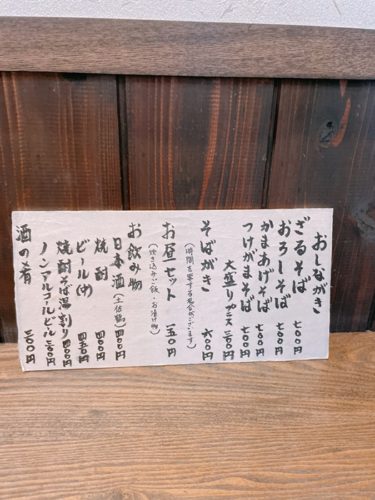 おしながき
ざるそば 七〇〇円
おろしそば 七〇〇円
かまあげそば 七〇〇円
つけがまそば 七〇〇円
大盛りプラス 三〇〇円
そばがき 六〇〇円
(時間を要する場合がございます)
お昼セット 一五〇円
(炊き込みご飯・お漬け物)
お飲み物
日本酒(土佐鶴) 四〇〇円
焼酎 四〇〇円
ビール(中) 四五〇円
焼酎そば湯割り 四〇〇円
ノンアルコールビール 三〇〇円
酒の肴 三〇〇円